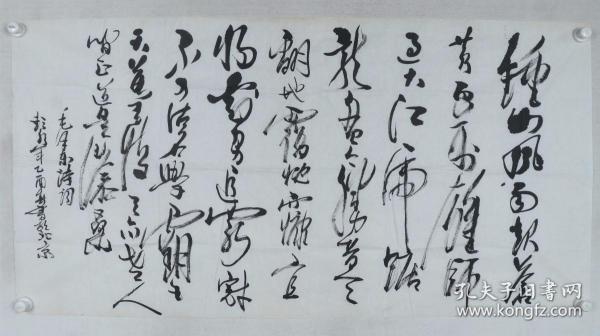 鍾山風雨起蒼
黄百万雄師
过大江虎踞
龍盘今勝昔天
翻地覆慨而慷宜
将剩勇追窮寇
不可沽名學霸王
天若有情天亦老人
间正道是滄桑
毛泽东诗词
乙酉 書於北京
孔夫子旧书网
www.kongfz.com